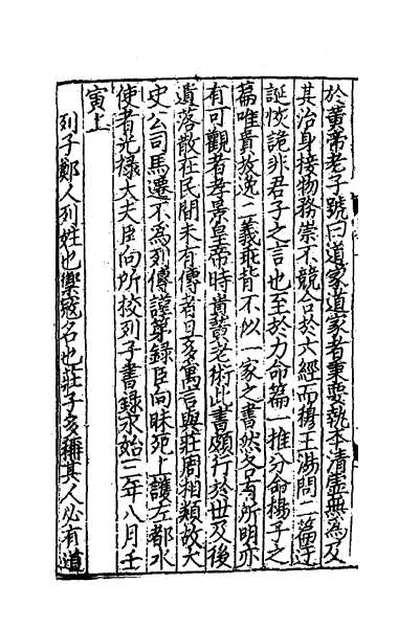 於黄帝老子號曰道家道家者秉要執本清虚無為及
其治身接物務崇不競合於六經而穆王湯問二篇迂
誕恢詭非君子之言也至於力命篇一推分命楊子之
篇唯貴放逸二義乖背不似一家之書然各有所明亦
有可觀者孝景皇帝時貴黄老術此書頗行於世及後
遺落散在民間未有傳者且多寓言與莊周相類故太
史公司馬遷不為列傳謹第錄臣向昧死上護左都水
使者光禄大夫臣向所校列子書錄永始三年八月壬
寅上
列子鄭人列姓也禦寇名也莊子多稱其人必有道